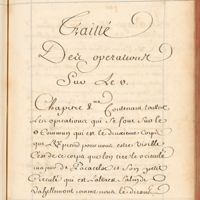 Traitté
Des operations
Sur Le
Chapitre 8me Contenant toutes
Les operations qui se font sur le
Commun qui est le deuxieme Corps
que prend pour nous cette vieille
C'est de ce corps que l'on tire le
de Paracelse et Son petit
Circulé qui est
comme nous le dirons